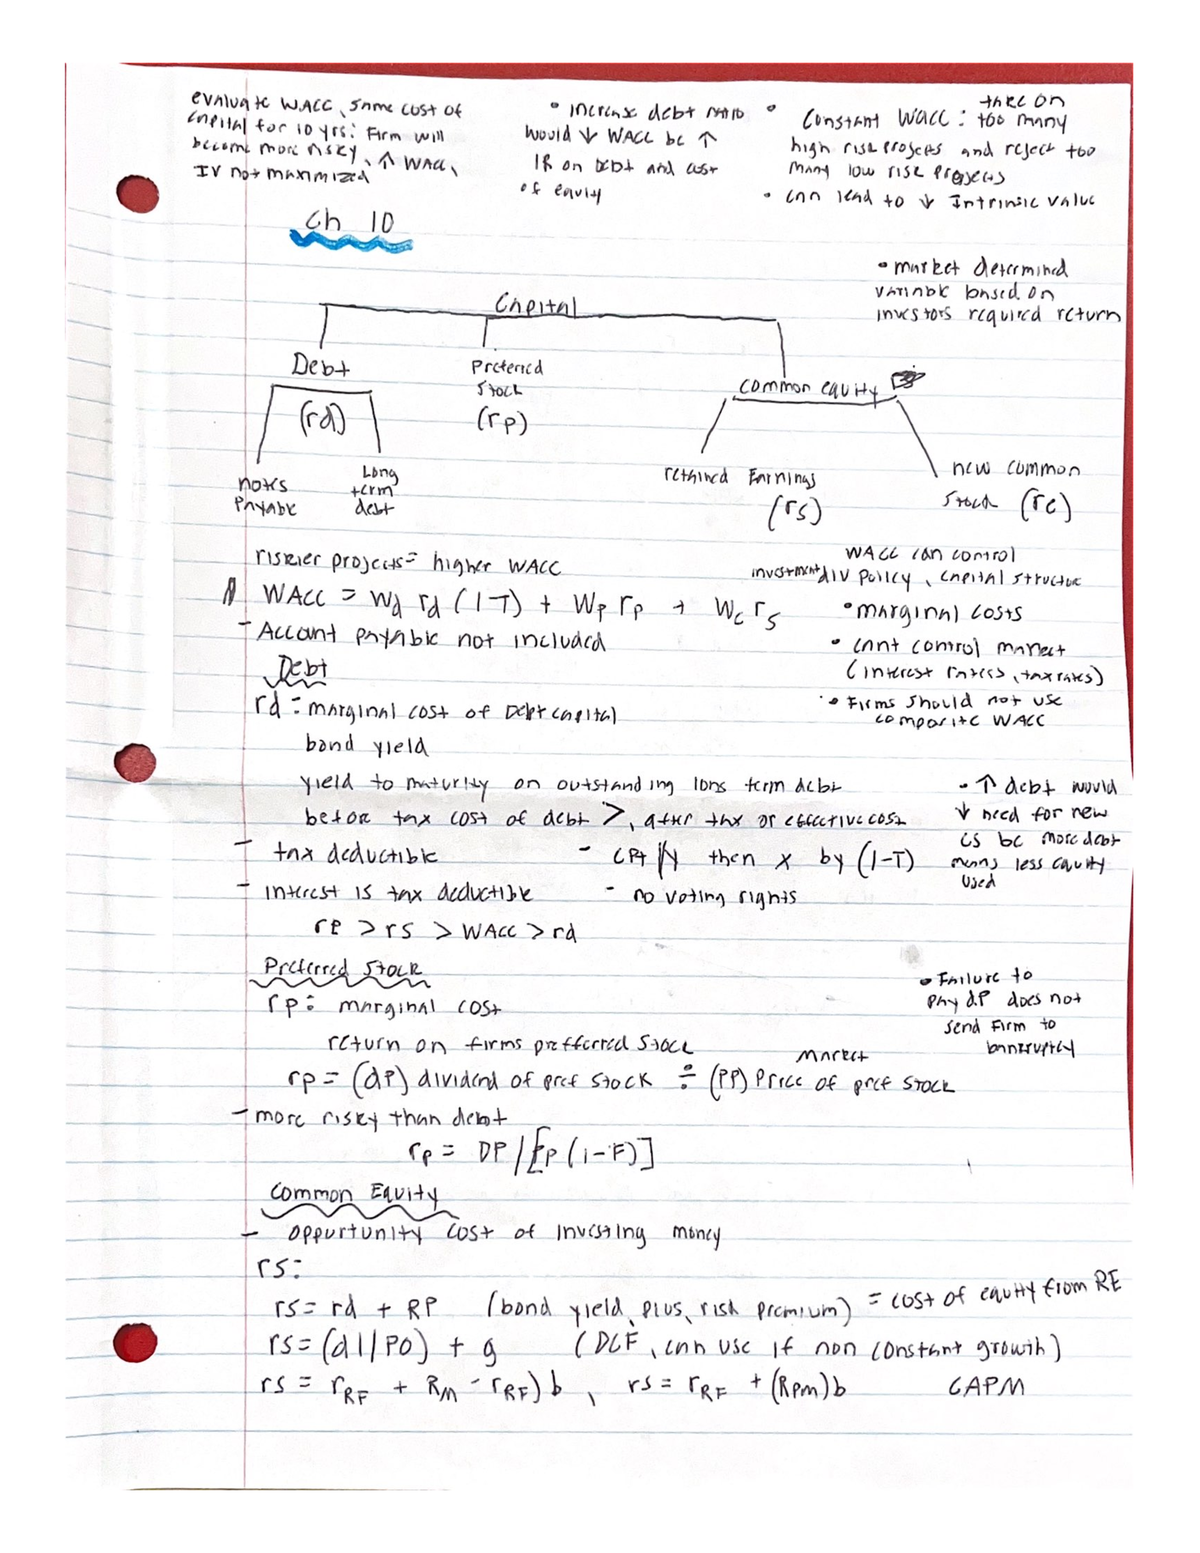 evaluate WACC, same cost of
capital for 10 yrs: Firm will
become more risky, ↑ WACC,
IV not maximized
• increase debt ratio
would ↓ WACC bc ↑
IR on debt and cost
of equity
• Constant WACC: take on too many
high risk projects and reject too
many low risk projects
• can lead to ↓ Intrinsic value
Ch 10
• market determined
variable based on
investors required return
Capital
Debt
(rd)
Prefered
Stock
(rp)
common equity
notes
payable
Long
term
debt
retained Earnings
(rs)
new common
stock (re)
riskier projects = higher WACC
WACC can control
investment div policy, capital structue
WACC = Wd rd (1-T) + Wp rp + Wc rs
• marginal costs
- Account payable not included
• cant control market
(interest rates, tax rates)
Debt
• Firms should not use
composite WACC
rd: marginal cost of Debt capital
bond yield
yield to maturity on outstanding long term debt
before tax cost of debt >, after tax or effective cost
• ↑ debt would
↓ need for new
CS bc more debt
means less equity
used
- tax deductible
- CPT I/Y then x by (1-T)
- interest is tax deductible
- no voting rights
re > rs > WACC > rd
Preferred Stock
rp: marginal cost
• Failure to
pay d.P does not
send Firm to
bankruptcy
return on firms prefferred Stock
rp = (dP) dividend of pref stock ÷ (PP) market Price of pref stock
- more risky than debt
rp = DP / [Pp (1-F)]
Common Equity
- opportunity cost of investing money
rs:
rs = rd + RP (bond yield, plus, risk premium) = cost of equity from RE
rs = (d1/P0) + g (DCF, can use if non constant growth)
rs = rRF + RM - rRF) b, rs = rRF + (RPM) b CAPM